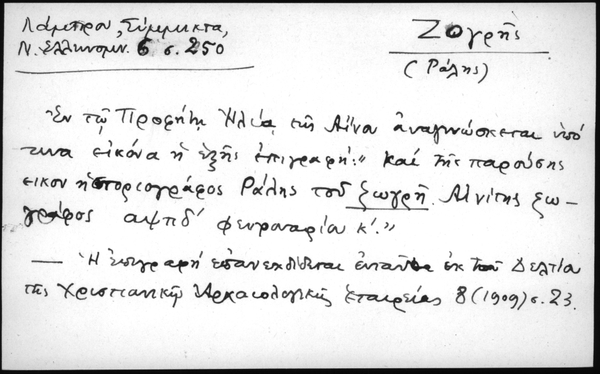 Λάμπρου, Σύμμικτα,
Ν. Ελληνομν. 6 σ. 250
Ζωγρῆς
(Ράλης)
"Εν τῷ Προφήτῃ Ηλίᾳ τῆς Αίνου ἀναγινώσκεται ὑπό
τινα εἰκόνα ἡ ἑξῆς ἐπιγραφή:" Καί της παρούσης
εικον ηστοριογράφος Ράλης του ζωγρῆ. Αινίτης ζω-
γράφος αψπδ' φευρουαρίου κ'."
— Ἡ ἐπιγραφή ἐπανεκδίδεται ἐνταῦθα ἐκ τοῦ Δελτίου
της Χριστιανικῆς Ἀρχαιολογικῆς Ἑταιρείας 8 (1909) σ. 23.